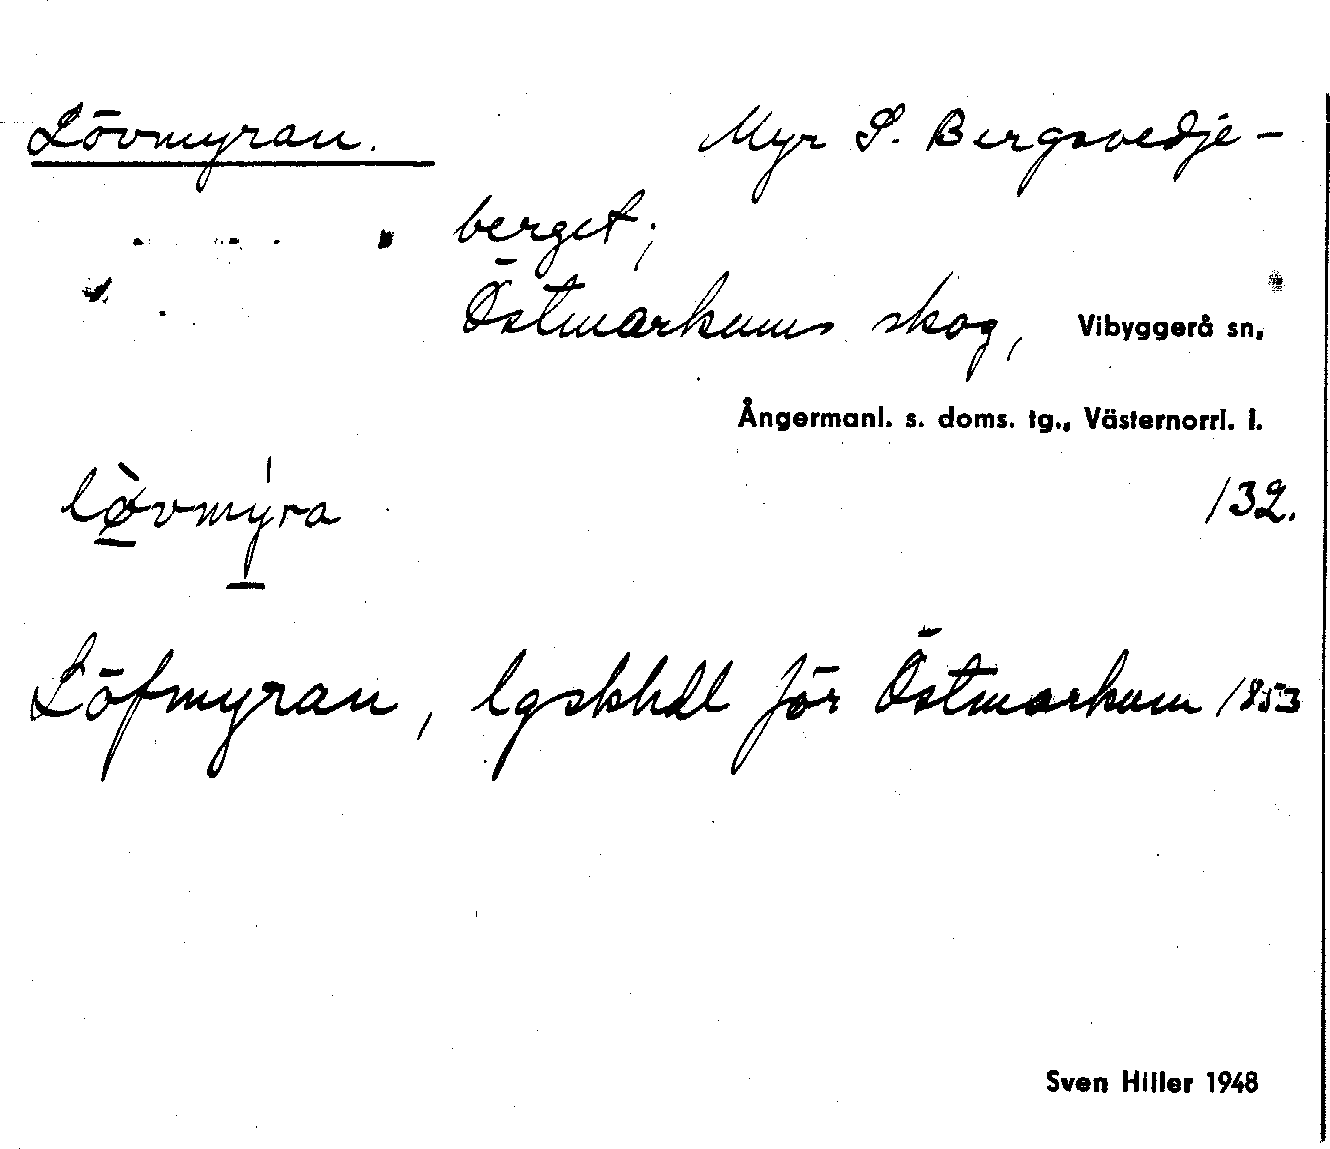 Lövmyran. Myr S. Bergsvedje-
berget;
Östmarkums skog, Vibyggerå sn,
Ångermanl. s. doms. tg., Västernorrl. l.
lø̀vmýra 132.
Löfmyran, lgskhdl för Östmarkum 1853
Sven Hiller 1948